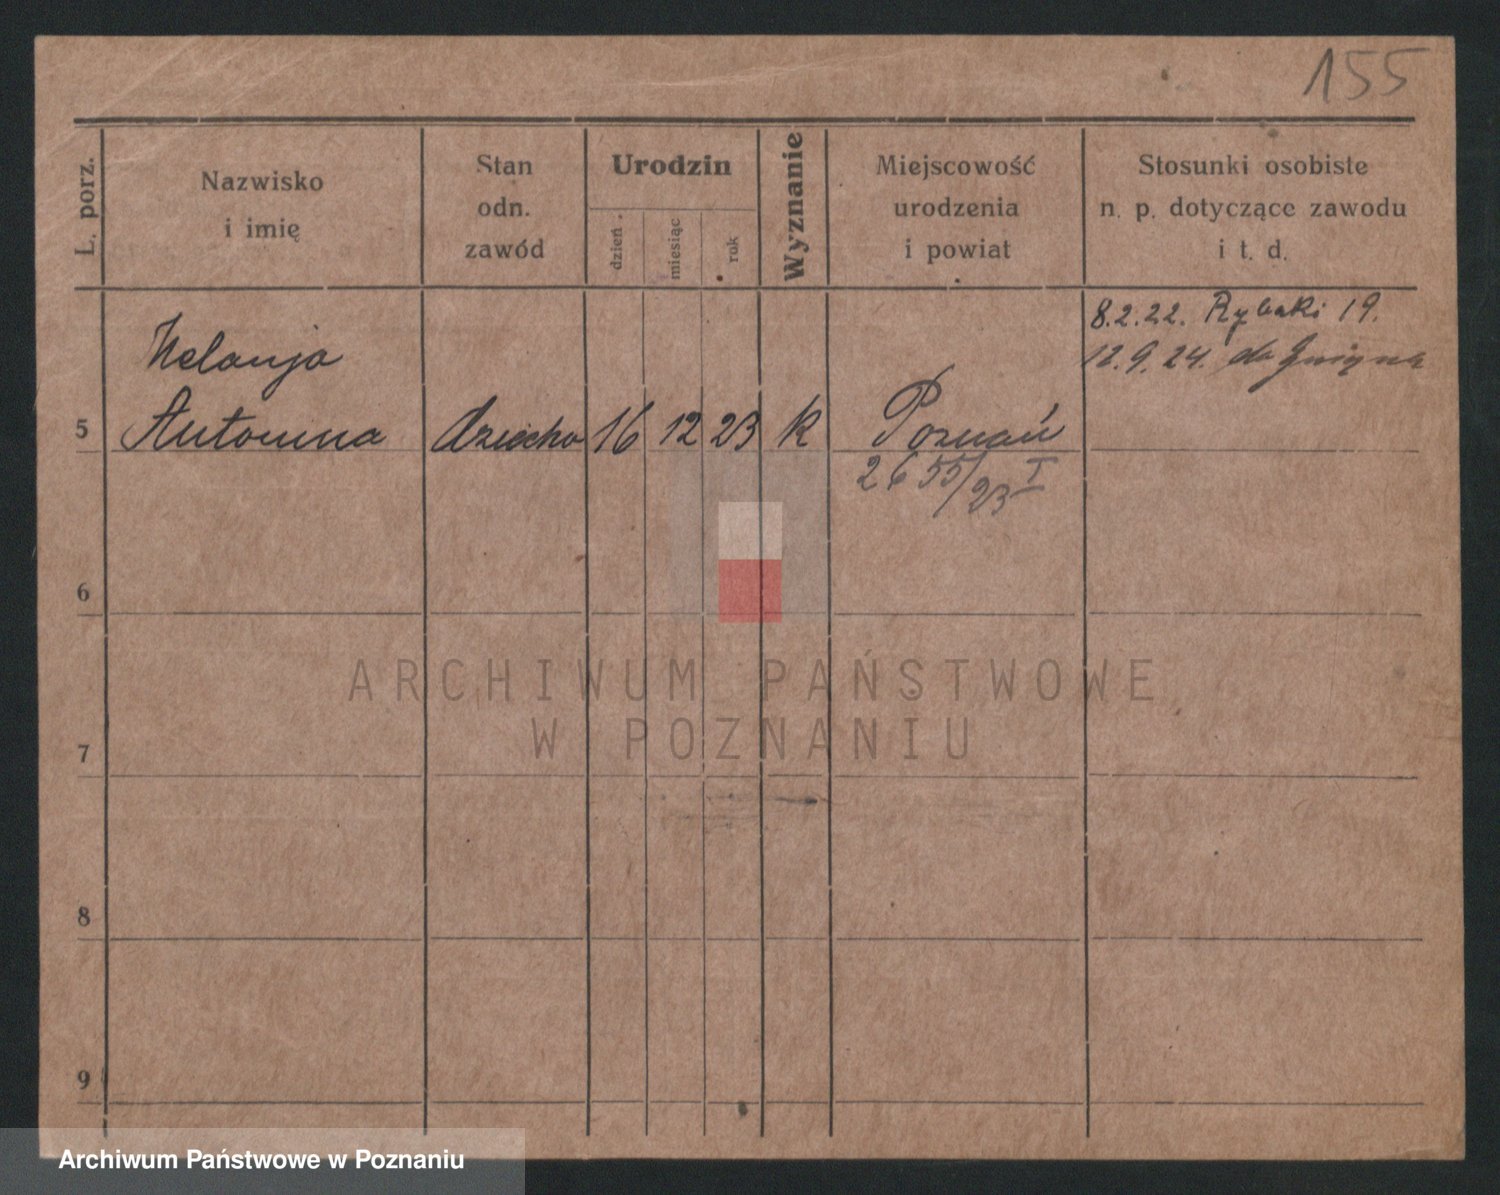 155
L. porz.
Nazwisko
i imię
Stan
odn.
zawód
Urodzin
dzień
miesiąc
rok
Wyznanie
Miejscowość
urodzenia
i powiat
Stosunki osobiste
n. p. dotyczące zawodu
i t. d.
8.2.22. Rybaki 19.
12.9.24. do
Melanja
5 Antonina dziecko 16 12 23 k Poznań
2655/23 I
6
7
8
9
ARCHIWUM PAŃSTWOWE
W POZNANIU
Archiwum Państwowe w Poznaniu